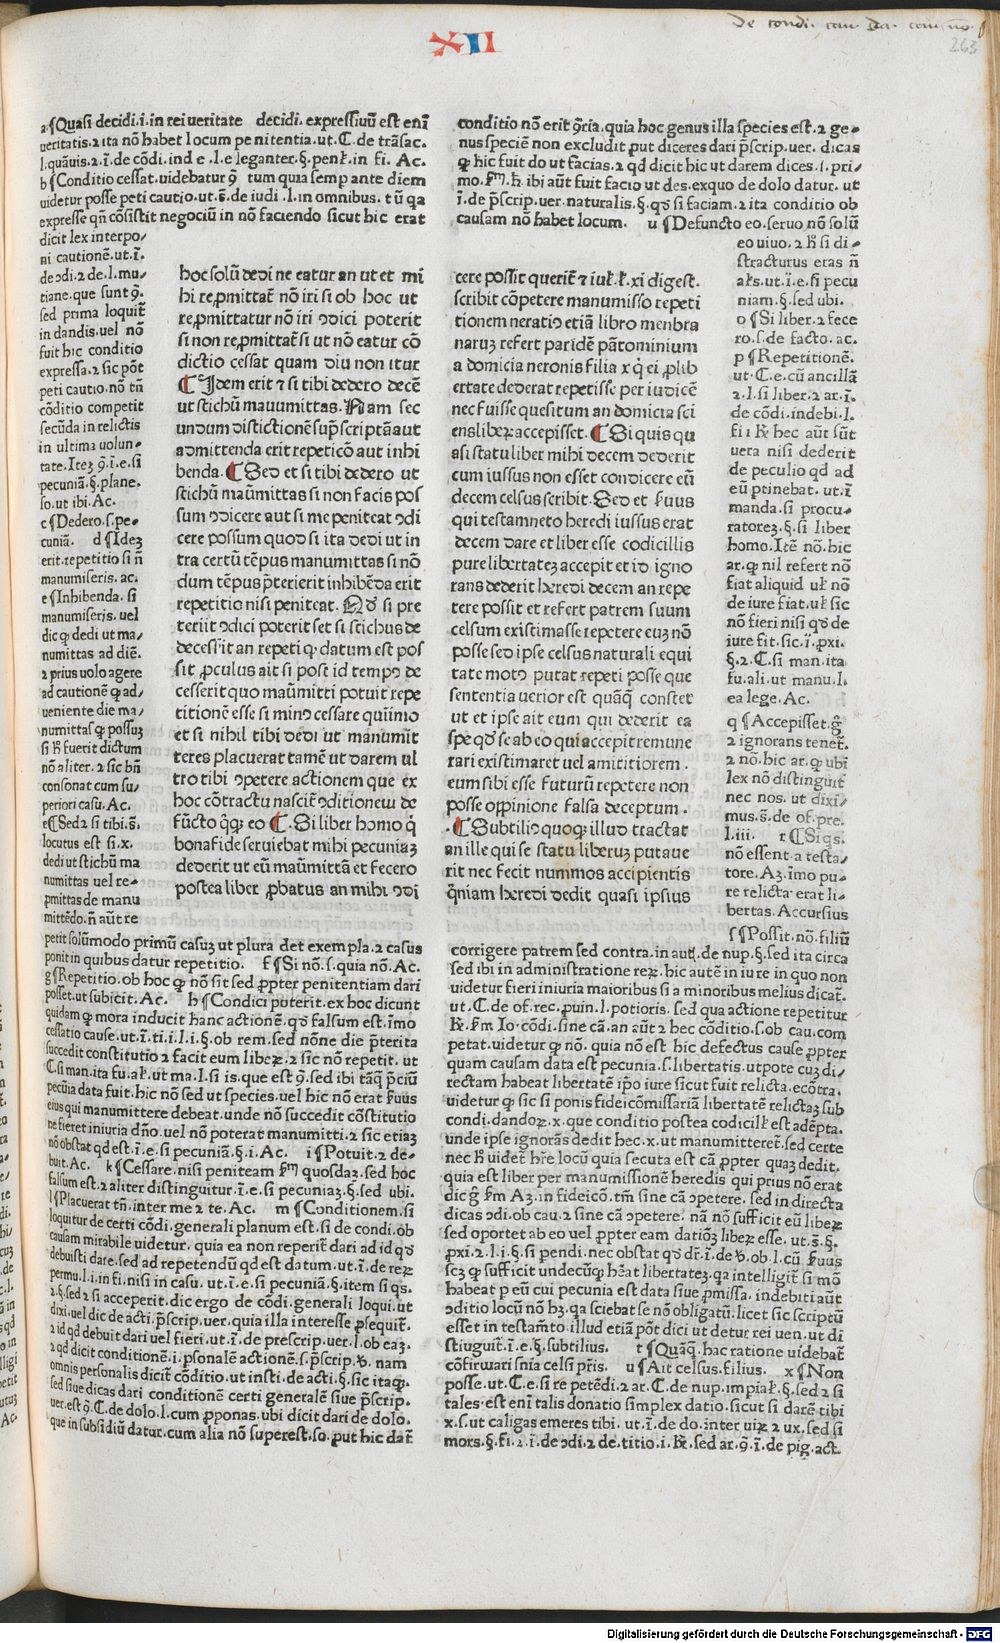 de condi. cau. da. cau. nō.
263
XII
a ¶Quasi decidi.i.in rei ueritate decidi.expressiuū est enī
ueritatis.2 ita nō habet locum penitentia.ut.C.de trāsac.
l.quāuis.2.ī.de cōdi.inde.l.eleganter.§.penƚ.in fi. Ac.
b ¶Conditio cessat.uidebatur ꝯtum quia semp ante diem
uidetur posse peti cautio.ut.s̄.de iudi.l.in omnibus.tū qa
expresse qn̄ cōsistit negociū in nō faciendo sicut hic erat
dicit lex interpo/
ni cautionē.ut.ī.
de ꝯdi.2 de.l.mu/
tiane.que sunt ꝯ.
sed prima loquiť
in dandis.uel nō
fuit hic conditio
expressa.2 sic pōt
peti cautio.nō tn̄
cōditio competit
secūda in relictis
in ultima uolun/
tate.Iteꝫ ꝯ.ī.e.si
pecuniā.§.plane.
so.ut ibi.Ac.
c ¶Dedero.s.pe/
cuniā. d ¶Ideꝫ
erit.repetitio si n̄
manumiseris. ac.
e ¶Inhibenda. si
manumiseris.uel
dic ꝙ dedi ut ma/
numittas ad diē.
2 prius uolo agere
ad cautionē ꝙ ad/
ueniente die ma/
numittas ꝙ possuꝫ
si h̄ fuerit dictum
nō aliter.2 sic bn̄
consonat cum su/
periori casu. Ac.
e ¶Sed 2 si tibi.s̄.
locutus est si.x.
dedi ut stichū ma
numittas uel re/
pmittas de manu
mittēdo.n̄ aūt re
petit solūmodo primū casuꝫ ut plura det exempla.2 casus
ponit in quibus datur repetitio. f ¶Si nō.s.quia nō.Ac.
g ¶Repetitio.ob hoc ꝙ nō sit sed ꝓpter penitentiam dari
posset.ut subicit.Ac. h ¶Condici poterit.ex hoc dicunt
quidam ꝙ mora inducit hanc actionē.qd̄ falsum est.īmo
cessatio cause.ut.ī.ti.i.l.i.§.ob rem.sed nōne die p̄terita
succedit constitutio 2 facit eum libeꝝ.2 sic nō repetit. ut
C.si man.ita fu.aƚ.ut ma.l.si is.que est ꝯ.sed ibi tāꝙ p̄ciū
pecūia data fuit.hic nō sed ut species.uel hic nō erat ẜuus
eius qui manumittere debeat.unde nō succedit cōstitutio
ne fieret iniuria dn̄o.uel nō poterat manumitti.2 sic etiaꝫ
nō obstat qd est.ī.e.si pecuniā.§.i.Ac. i ¶Potuit.2 de/
buit.Ac. k ¶Cessare.nisi peniteam ẜm quosdaꝫ.sed hoc
falsum est.2 aliter distinguitur.ī.e.si pecuniaꝫ.§.sed ubi.
l ¶Placuerat tn̄.inter me 2 te.Ac. m ¶Conditionem.si
loquitur de certi cōdi.generali planum est.si de condi.ob
causam mirabile uidetur. quia ea non reperiť dari ad id qd̄
debuisti dare.sed ad repetendū qd est datum.ut.ī.de reꝝ
permu.l.i.in fi.nisi in casu. ut.ī.e.si pecuniā.§.item si qs.
2.§.sed 2 si acceperit.dic ergo de cōdi.generali loqui.ut
dixi.uel dic de acti.p̄scrip.uer.quia illa interesse ꝑsequiť.
2 id qd debuit dari uel fieri.ut.ī.de prescrip.uer.l.ob eaꝫ.
2 qd dicit conditionē.i.ꝑsonalē actionē.s.p̄scrip.ꝟ. nam
omnis personalis dicit̄ cōditio.ut insti.de acti.§.sic itaqꝫ.
sed siue dicas dari conditionē certi generalē siue p̄scrip.
uer.est ꝯ.C.de dolo.l.cum ꝓponas.ubi dicit dari de dolo.
que in subsidiū datur.cum alia nō superest.so.put hic dať
hoc solū dedi ne eatur an ut et mi
hi repmittaƭ nō iri si ob hoc ut
repmittatur nō iri ꝯdici poterit
si non repmittaƭ si ut nō eatur cō
dictio cessat quam diu non itur
¶Idem erit ⁊ si tibi dedero decē
ut stichū mauumittas. Nam sec
undum distictionē sup̄scriptā aut
admittenda erit repeticō aut inhi
benda. ¶Sed et si tibi dedero ut
stichū maūmittas si non facis pos
sum ꝯdicere aut si me peniteat ꝯdi
cere possum quod si ita dedi ut in
tra certū tēpus manumittas si nō
dum tēpus p̄terierit inhibēda erit
repetitio nisi peniteat. Qd̄ si pre
teriit ꝯdici poterit set si stichus de
decess̄it an repeti ꝙ datum est pos
sit ꝓculus ait si pose id tempꝯ de
cesserit quo maūmitti potuit repe
titionē esse si minꝯ cessare quiīmo
et si nihil tibi dedi ut manumit
teres placuerat tamē ut darem ul
tro tibi ꝯpetere actionem que ex
hoc cōtractu nasciƭ ꝯditioneui de
fūcto q̄qꝫ eo ¶.Si liber homo q̄
bona fide seruiebat mihi pecuniaꝫ
dederit ut eū maūmittā et fecero
postea liber ꝓbatus an mihi ꝯdi
conditio nō erit ꝯr̄ia.quia hoc genus illa species est.2 ge/
nus speciē non excludit put diceres dari p̄scrip.uer. dicas
ꝙ hic fuit do ut facias.2 qd dicit hic ut darem dices.s.pri/
mo.ẜm.h̄.ibi aūt fuit facio ut des.exquo de dolo datur. ut
ī.de p̄scrip.uer.naturalis.§.qd̄ si faciam.2 ita conditio ob
causam nō habet locum. u ¶Defuncto eo.seruo nō solū
eo uiuo.2 h̄ si di/
stracturus eras n̄
aƚs.ut.ī.e.si pecu
niam.§.sed ubi.
o ¶Si liber.2 fece
ro.s.de facto. ac.
p ¶Repetitionē.
ut.C.e.cū ancillā
2.l.si liber.2 ar.ī.
de cōdi.indebi.l.
fi 1 R̄ hec aūt sūt
uera nisi dederit
de peculio qd ad
eū ptinebat. ut.ī
manda.si procu/
ratoreꝫ.§.si liber
homo.Itē nō.hic
ar.ꝙ nil refert nō
fiat aliquid uƚ nō
de iure fiat.uƚ sic
nō fieri nisi qd̄ de
iure fit.sic.ī.ꝓxi.
§.2.C.si man.ita
fu.ali.ut manu.l.
ea lege. Ac.
q ¶Accepisset.ḡ
2 ignorans teneť.
2 nō.hic ar.ꝙ ubi
lex nō distinguit
nec nos.ut dixi/
mus.s̄.de of.pre.
l.iii. r ¶Si qs.
nō essent a testa/
tore.Aꝫ.īmo pu/
re relicta erat li/
bertas.Accursius
s ¶Possit.nō.filiū
cere possit querit̄ ⁊ iuƚ.ƚ.xi digest.
scribit cōpetere manumisso repeti
tionem neratiꝯ etiā libro menbra
naruꝫ refert paridē pātominium
a domicia neronis filia x q̄ ei ꝓ lib
ertate dederat repetisse per iudicē
nec fuisse quesitum an domicia sci
ens libeꝝ accepisset. ¶Si quis qu
asi statu liber mihi decem dederit
cum iussus non esset condicere eū
decem celsus scribit. Sed et ẜuus
qui testamneto heredi iussus erat
decem dare et liber esse codicillis
pure libertateꝫ accepit et id igno
rans dederit heredi decem an repe
tere possit et refert patrem suum
celsum existimasse repetere euꝫ nō
posse sed ipse celsus naturali equi
tate motꝯ putat repeti posse que
sententia uerior est quāqꝫ constet
ut et ipse ait eum qui dederit ea
spe qd̄ se ab eo qui accepit remune
rari existimaret uel amititiorem.
eum sibi esse futurū repetere non
posse oppinione falsa deceptum.
.¶Subtiliꝯ quoqꝫ illud tractat
an ille qui se statu liberuꝫ putaue
rit nec fecit nummos accipientis
qn̄iam heredi dedit quasi ipsius
corrigere patrem sed contra.in auṭ.de nup.§.sed ita circa
sed ibi in administratione reꝝ.hic autē in iure in quo non
uidetur fieri iniuria maioribus si a minoribus melius dicať.
ut.C.de of.rec.ꝓuin.l.potioris. sed qua actione repetitur
R̄.ẜm Io.cōdi.sine cā.an aūt 2 hec cōditio.s.ob cau.com
petat.uidetur ꝙ nō. quia nō est hic defectus cause ꝓpter
quam causam data est pecunia.s.libertatis.utpote cuꝫ di/
rectam habeat libertatē ip̄o iure sicut fuit relicta.ecōtra.
uidetur ꝙ sic si ponis fideicōmissariā libertatē relictaꝫ sub
condi.dandoꝝ.x.que conditio postea codiciƚƚ est adēpta.
unde ipse ignorās dedit hec.x.ut manumittereť.sed certe
nec h̄ uideť hr̄e locū quia secuta est cā ꝓpter quaꝫ dedit.
quia est liber per manumissionē heredis qui prius nō erat
dic ḡ ẜm Aꝫ.in fideicō.tm̄ sine cā ꝯpetere. sed in directa
dicas ꝯdi.ob cau.2 sine cā ꝯpetere. nā nō sufficit eū libeꝝ
sed oportet ab eo uel ꝓpter eam datiōꝫ libeꝝ esse. ut.s̄.§.
ꝓxi.2.l.i.§.si pendi.nec obstat qd̄ dr̄.ī.de ꝟ.ob.l.cū ẜuus
scꝫ ꝙ sufficit undecūqꝫ h̄eat libertateꝫ.qa intelligiť si mō
habeat p eū cui pecunia est data siue pmissa. indebiti aūt
ꝯditio locū nō hꝫ.qa sciebat se nō obligatū.licet sic scriptū
esset in testam̄to.illud etiā pōt dici ut detur rei uen. ut di
stiuguiť.ī.e.§.subtilius. t ¶Quāqꝫ.hac ratione uidebať
cōfirwari sn̄ia celsi pr̄is. u ¶Ait celsus.filius. x ¶Non
posse.ut.C.e.si repetēdi.2 ar.C.de nup.impiaƚ.§.sed 2 si
tales.est eni talis donatio simplex datio.sicut si darē tibi
x.s.ut caligas emeres tibi. ut.ī.de do.inter uiꝝ 2 ux.sed si
mors.§.fi.2.ī.de ꝯdi.2 de.titio.i.R̄.sed ar.ꝯ.ī.de pig.act.
Digitalisierung gefördert durch die Deutsche Forschungsgemeinschaft - DFG